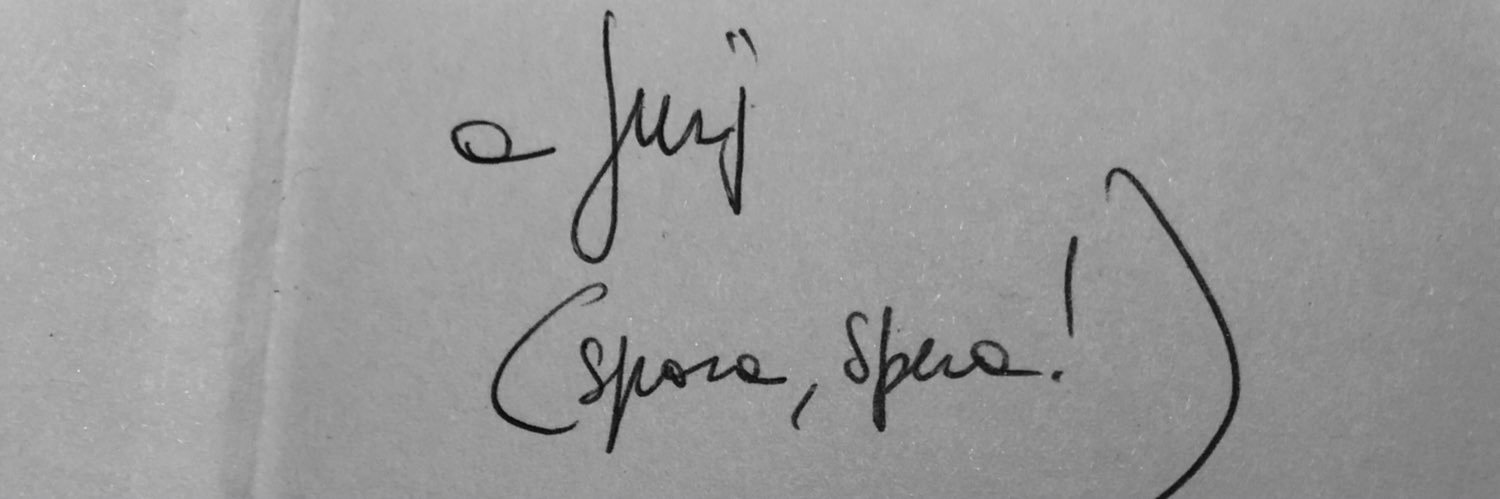 a Jurij
(spora, spera!)